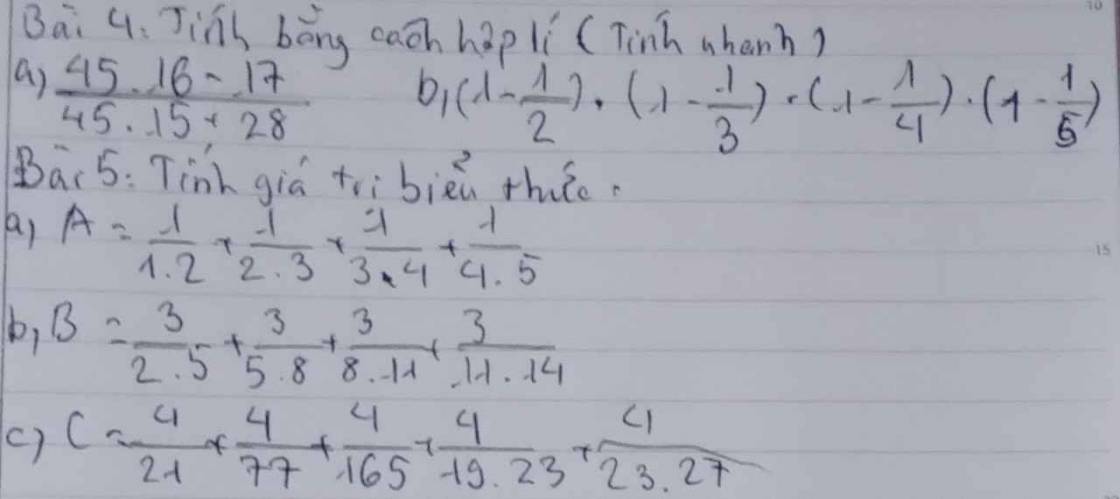 Bài 4: Tính bằng cách hợp lí (Tính nhanh)
a) \frac{45.16-17}{45.15+28} b, (1-\frac{1}{2}).(1-\frac{1}{3}).(1-\frac{1}{4}).(1-\frac{1}{5})
Bài 5: Tính giá trị biểu thức:
a, A = \frac{1}{1.2}+\frac{1}{2.3}+\frac{1}{3.4}+\frac{1}{4.5}
b, B = \frac{3}{2.5}+\frac{3}{5.8}+\frac{3}{8.11}+\frac{3}{11.14}
c, C = \frac{4}{21}+\frac{4}{77}+\frac{4}{165}+\frac{4}{19.23}+\frac{4}{23.27}
10
15